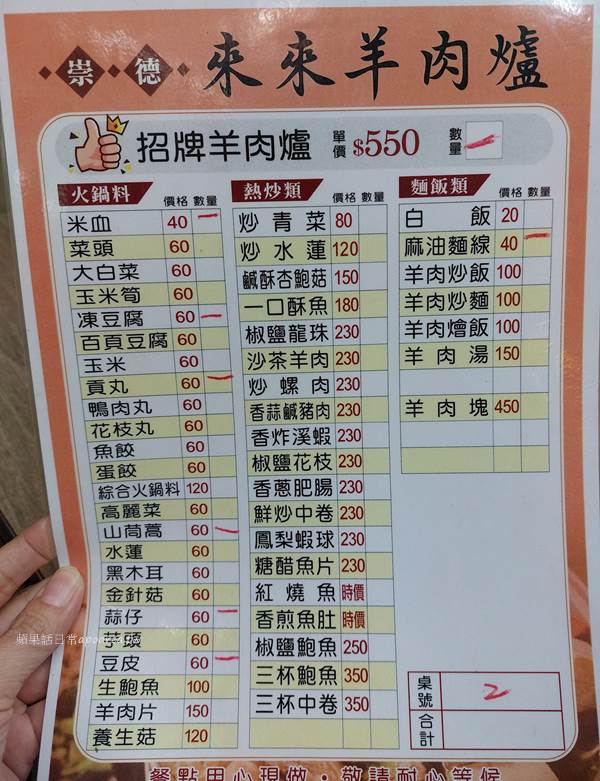 崇德 來來羊肉爐
招牌羊肉爐 單價 $550 數量
火鍋料 價格 數量
米血 40
菜頭 60
大白菜 60
玉米筍 60
凍豆腐 60
百頁豆腐 60
玉米 60
貢丸 60
鴨肉丸 60
花枝丸 60
魚餃 60
蛋餃 60
綜合火鍋料 120
高麗菜 60
山茼蒿 60
水蓮 60
黑木耳 60
金針菇 60
蒜仔 60
芋頭 60
豆皮 60
生鮑魚 100
羊肉片 150
養生菇 120
熱炒類 價格 數量
炒青菜 80
炒水蓮 120
鹹酥杏鮑菇 150
一口酥魚 180
椒鹽龍珠 230
沙茶羊肉 230
炒螺肉 230
香蒜鹹豬肉 230
香炸溪蝦 230
椒鹽花枝 230
香蔥肥腸 230
鮮炒中卷 230
鳳梨蝦球 230
糖醋魚片 230
紅燒魚 時價
香煎魚肚 時價
椒鹽鮑魚 250
三杯鮑魚 350
三杯中卷 350
麵飯類 價格 數量
白飯 20
麻油麵線 40
羊肉炒飯 100
羊肉炒麵 100
羊肉燴飯 100
羊肉湯 150
羊肉塊 450
桌號 2
合計
餐點用心現做・敬請耐心等候
蘋果話日常